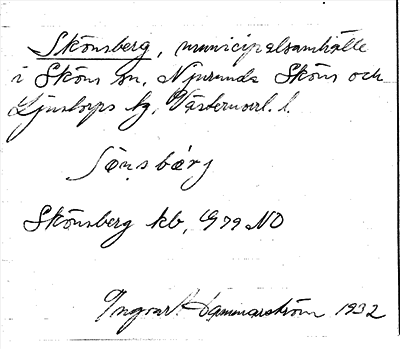 Skönsberg, municipalsamhälle
i Sköns sn, Njurunda Sköns och
Ljustorps tg, Västernorrl. l.
Skönsberg kb, G 79 NO
Ingvar Hammarström 1932